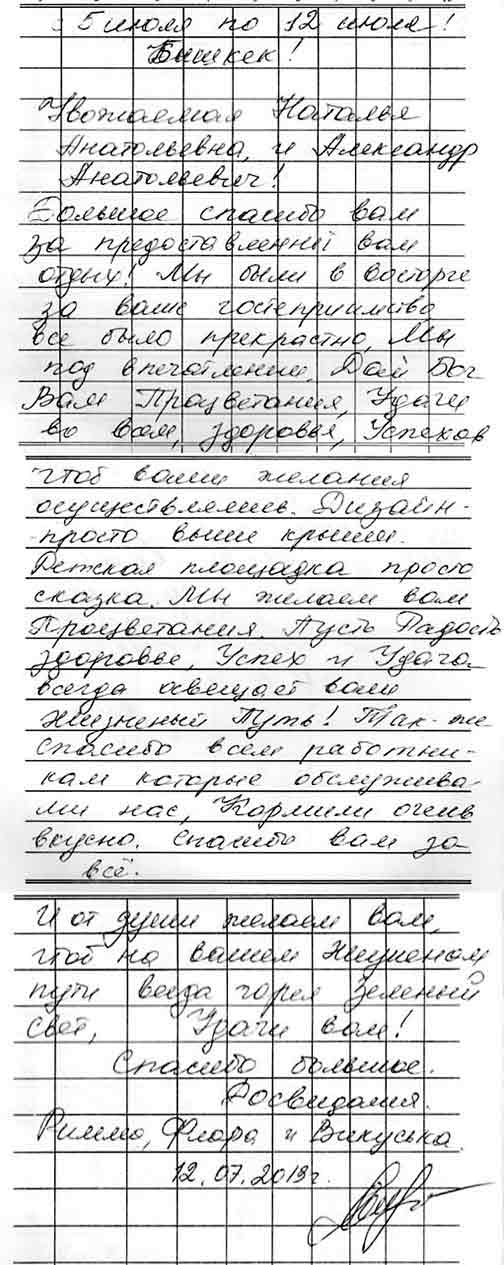 5 июля по 12 июля!
Бишкек!
Уважаемая Наталья
Анатольевна, и Александр
Анатольевич!
Большое спасибо вам
за предоставленный вам
отдых! Мы были в восторге
за ваше гостеприимство
все было прекрастно, Мы
под впечатлении. Дай Бог
Вам Процветания, Удачи
во всем, здоровье, Успехов
чтоб ваши желания
осуществлялись. Дизайн-
просто выше крыши.
Детская площадка просто
сказка. Мы желаем вам
Процветания. Пусть Радость
здоровье, Успех и Удача
всегда освещает ваш
жизненый Путь! Так-же
спасибо всем работни-
кам которые обслужива-
ли нас, Кормили очень
вкусно. Спасибо вам за
всё.
И от души желаем вам,
чтоб на вашем Жизненом
пути всегда горел Зеленый
свет, Удачи вам!
Спасибо большое.
Досвидания.
Римма, Флора и Викуська.
12.07.2019г.